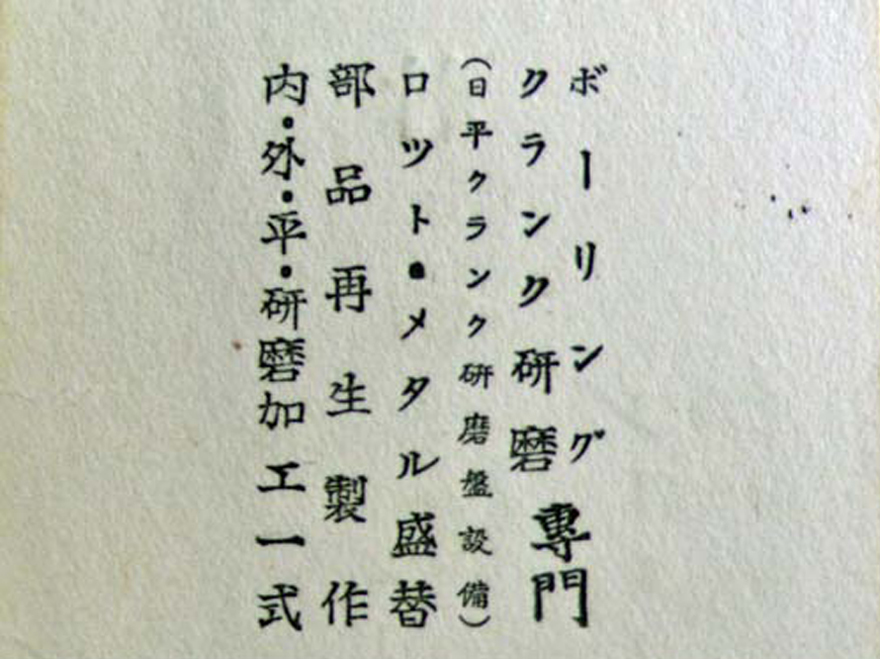 ボーリング
クランク研磨
專門
(日平クランク研磨盤設備)
ロツト・メタル盛替
部品再生製作
内・外・平・研磨加工一式